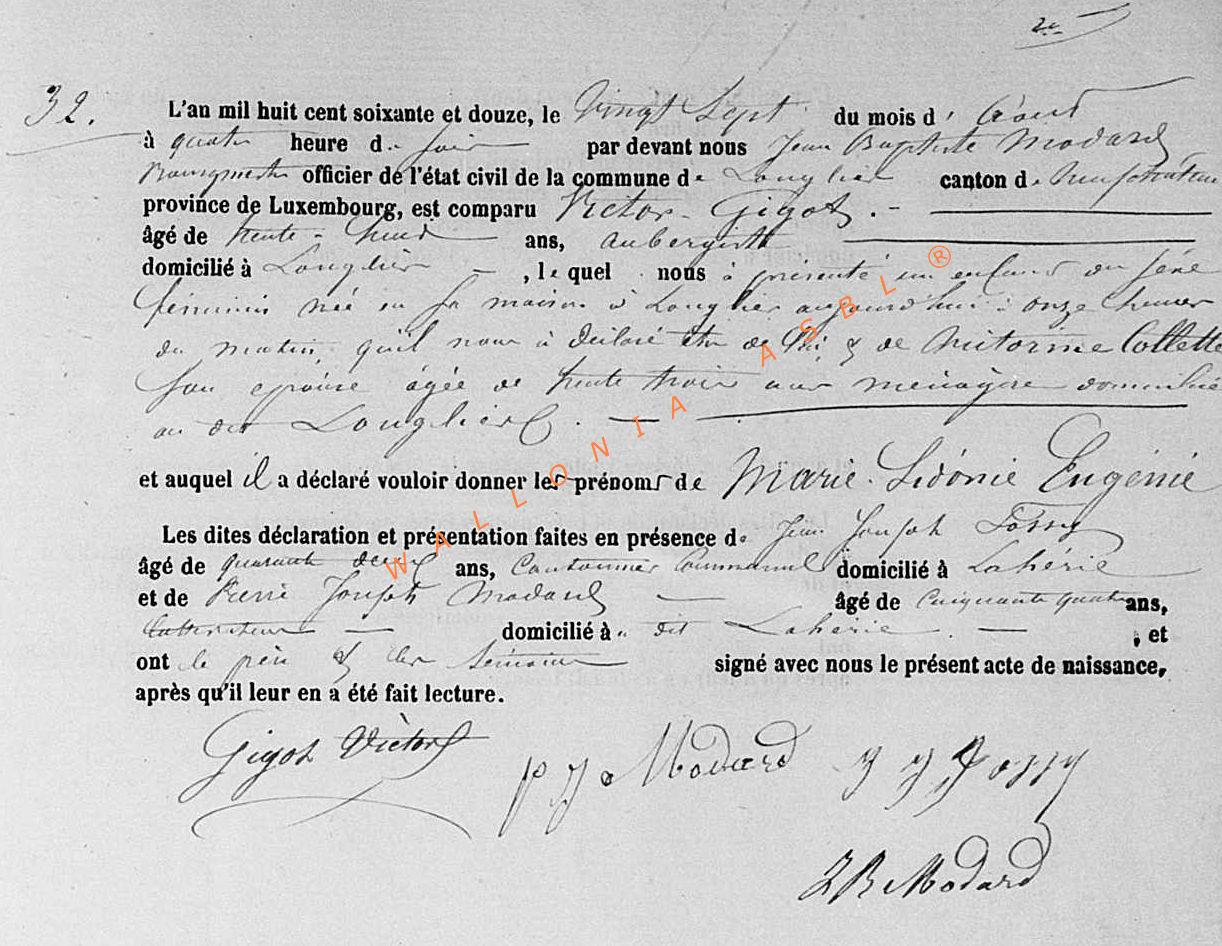 2e
32.
L'an mil huit cent soixante et douze, le Vingt Sept du mois d' Août
à quatre heure du soir par devant nous Jean Baptiste Modard
Bourgmestre officier de l'état civil de la commune de Longlier canton de Neufchâteau
province de Luxembourg, est comparu Victor Gigot. -
âgé de trente - ans, aubergiste
domicilié à Longlier - , le quel nous à présenté un enfant du séxe
féminin née en sa maison à Longlier aujourd'hui à onze heures
du matin, qu'il nous à déclaré être de lui & de Collette
son epouse âgée de trente trois ans ménagère domiciliée
au dit Longlier. -
et auquel il a déclaré vouloir donner les prénoms de Marie Sidonie Eugénie
Les dites déclaration et présentation faites en présence de Jean Joseph Jossy
âgé de quarante deux ans, Cantonnier Communal domicilié à Lahérie
et de Pierre Joseph Modard - âgé de Cinquante quatre ans,
Cultivateur - domicilié à dit Lahérie. - , et
ont le père & les témoins signé avec nous le présent acte de naissance,
après qu'il leur en a été fait lecture.
Gigot Victor p J Modard J J Jossy
J B Modard
WALLONIA ASBL ®